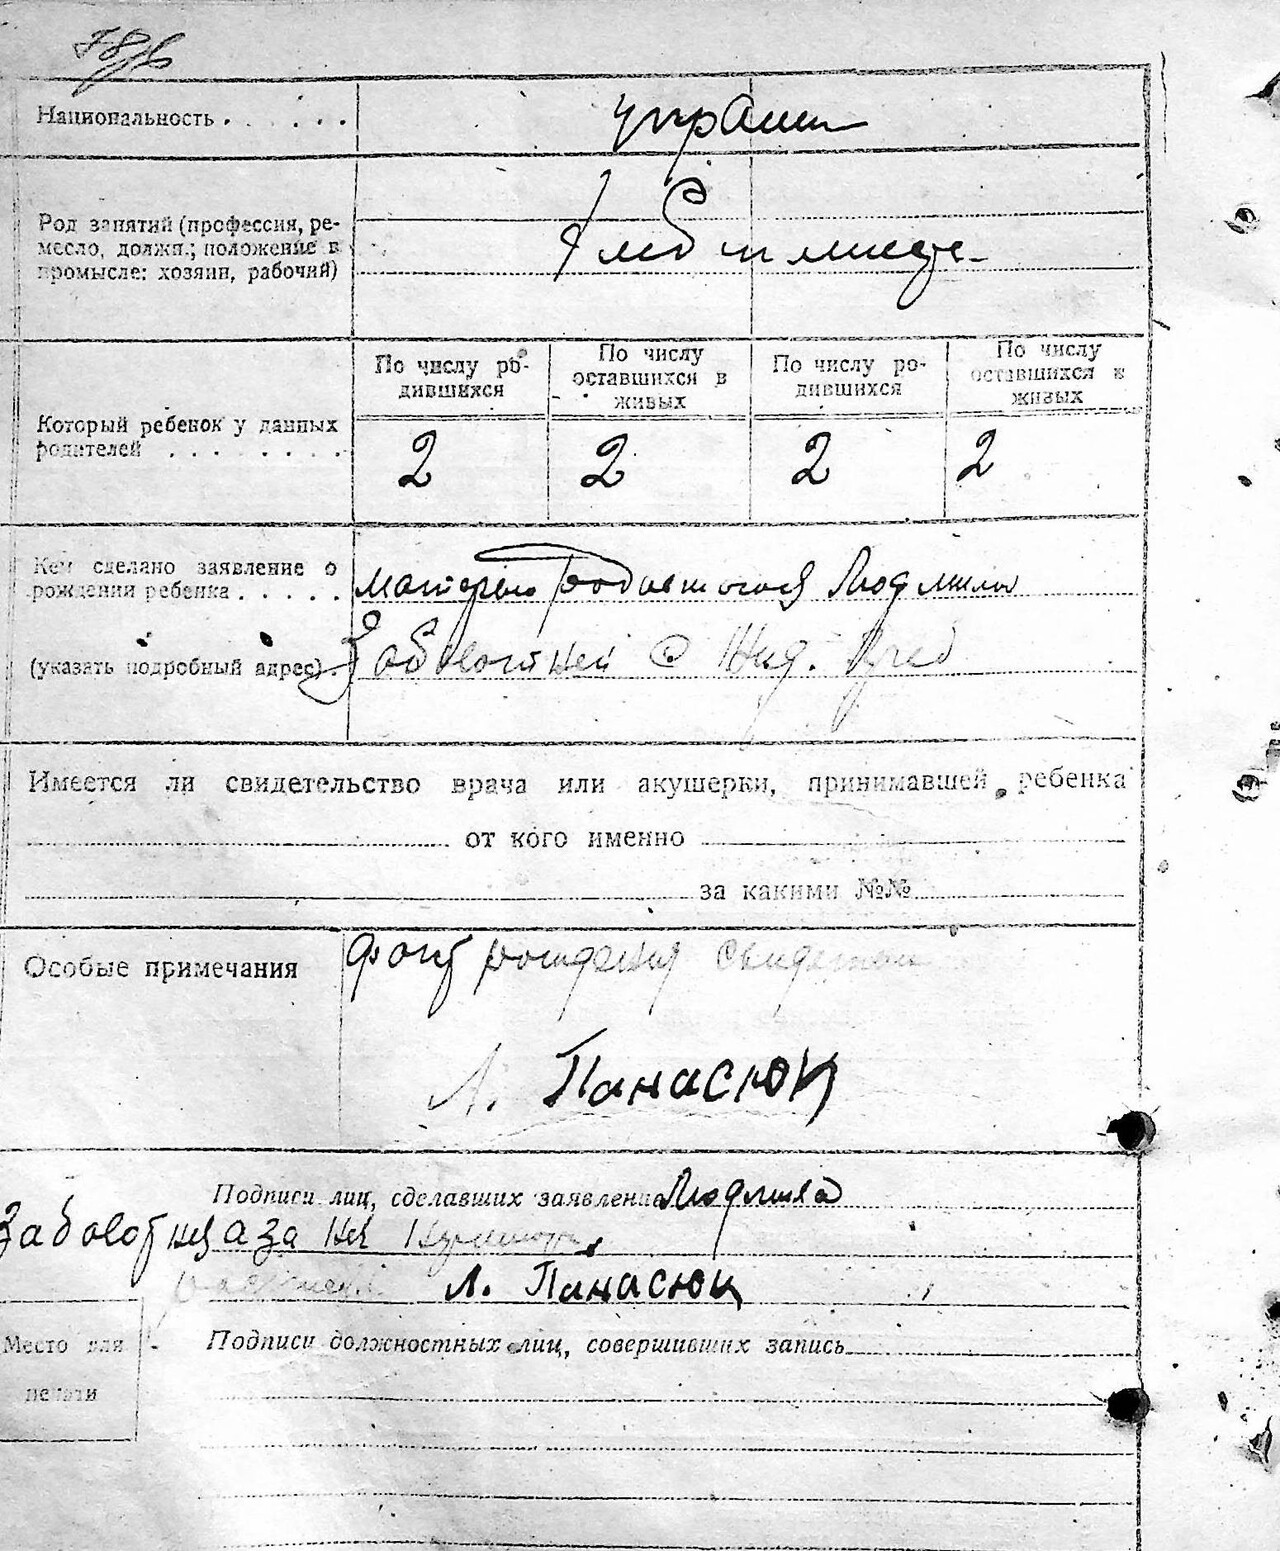 Национальность . . . . . .
украин
Род занятий (профессия, ре-
месло, должн.; положение в
промысле: хозяин, рабочий)
По числу ро-
дившихся
По числу
оставшихся в
живых
По числу ро-
дившихся
По числу
оставшихся в
живых
Который ребенок у данных
родителей . . . . . . . .
2 2 2 2
Кем сделано заявление о
рождении ребенка . . . . .
матерью родившегося Людмилы
(указать подробный адрес) .
Заболотней с
Имеется ли свидетельство врача или акушерки, принимавшей ребенка
от кого именно
за какими №№
Особые примечания
факт рождения
Л. Панасюк
Подписи лиц, сделавших заявление Людмила
Заболотная за
Л. Панасюк
Место для
печати
Подписи должностных лиц, совершивших запись